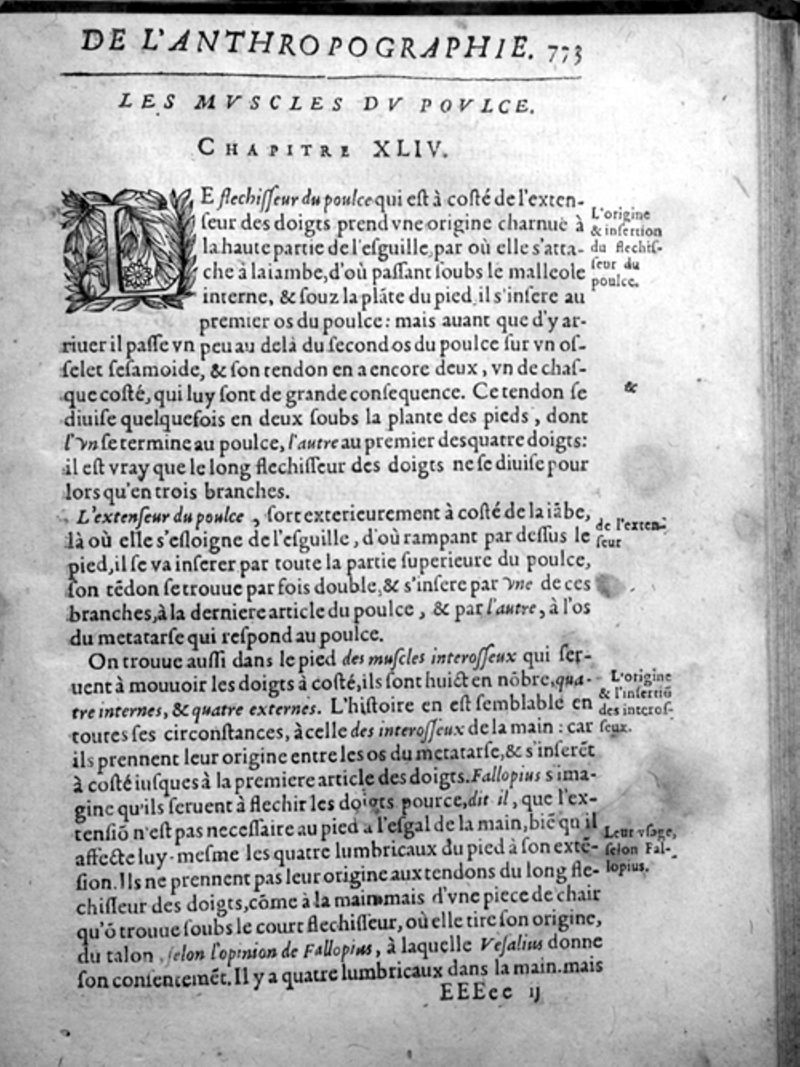 DE L'ANTHROPOGRAPHIE. 773
LES MVSCLES DV POVLCE.
CHAPITRE XLIV.
LE flechiſſeur du poulce qui est à coſté de l'exten-
ſeur des doigts prend vne origine charnuë à
la haute partie de l'eſguille, par où elle s'atta-
che à la iambe, d'où paſſant ſoubs le malleole
interne, & ſouz la plāte du pied, il s'inſere au
premier os du poulce: mais auant que d'y ar-
riuer il paſſe vn peu au delà du ſecond os du poulce ſur vn oſ-
ſelet ſeſamoide, & ſon tendon en a encore deux, vn de chaſ-
que coſté, qui luy ſont de grande conſequence. Ce tendon ſe
diuiſe quelquefois en deux ſoubs la plante des pieds, dont
l'vn ſe termine au poulce, l'autre au premier des quatre doigts:
il eſt vray que le long flechiſſeur des doigts ne ſe diuiſe pour
lors qu'en trois branches.
L'origine
& inſertion
du flechiſ-
ſeur du
poulce.
&
L'extenſeur du poulce, ſort exterieurement à coſté de la iābe,
là où elle s'eſloigne de l'eſguille, d'où rampant par deſſus le
pied, il ſe va inſerer par toute la partie ſuperieure du poulce,
ſon tēdon ſe trouue par fois double, & s'inſere par vne de ces
branches, à la derniere article du poulce, & par l'autre, à l'os
du metatarſe qui reſpond au poulce.
de l'exten-
ſeur
On trouue auſſi dans le pied des muſcles interoſſeux qui ſer-
uent à mouuoir les doigts à coſté, ils ſont huict en nōbre, qua-
tre internes, & quatre externes. L'hiſtoire en eſt ſemblable en
toutes ſes circonſtances, à celle des interoſſeux de la main: car
ils prennent leur origine entre les os du metatarſe, & s'inſerēt
à coſté iuſques à la premiere article des doigts. Fallopius s'ima-
gine qu'ils ſeruent à flechir les doigts pource, dit il, que l'ex-
tenſiō n'eſt pas neceſſaire au pied a l'eſgal de la main, biē qu'il
affecte luy-meſme les quatre lumbricaux du pied à ſon extē-
ſion. Ils ne prennent pas leur origine aux tendons du long fle-
chiſſeur des doigts, cōme à la main mais d'vne piece de chair
qu'ō trouue ſoubs le court flechiſſeur, où elle tire ſon origine,
du talon ſelon l'opinion de Fallopius, à laquelle Veſalius donne
ſon conſentemēt. Il y a quatre lumbricaux dans la main. mais
L'origine
& l'inſertiō
des interoſ-
ſeux.
Leur vſage,
ſelon Fal-
lopius.
EEEee ij